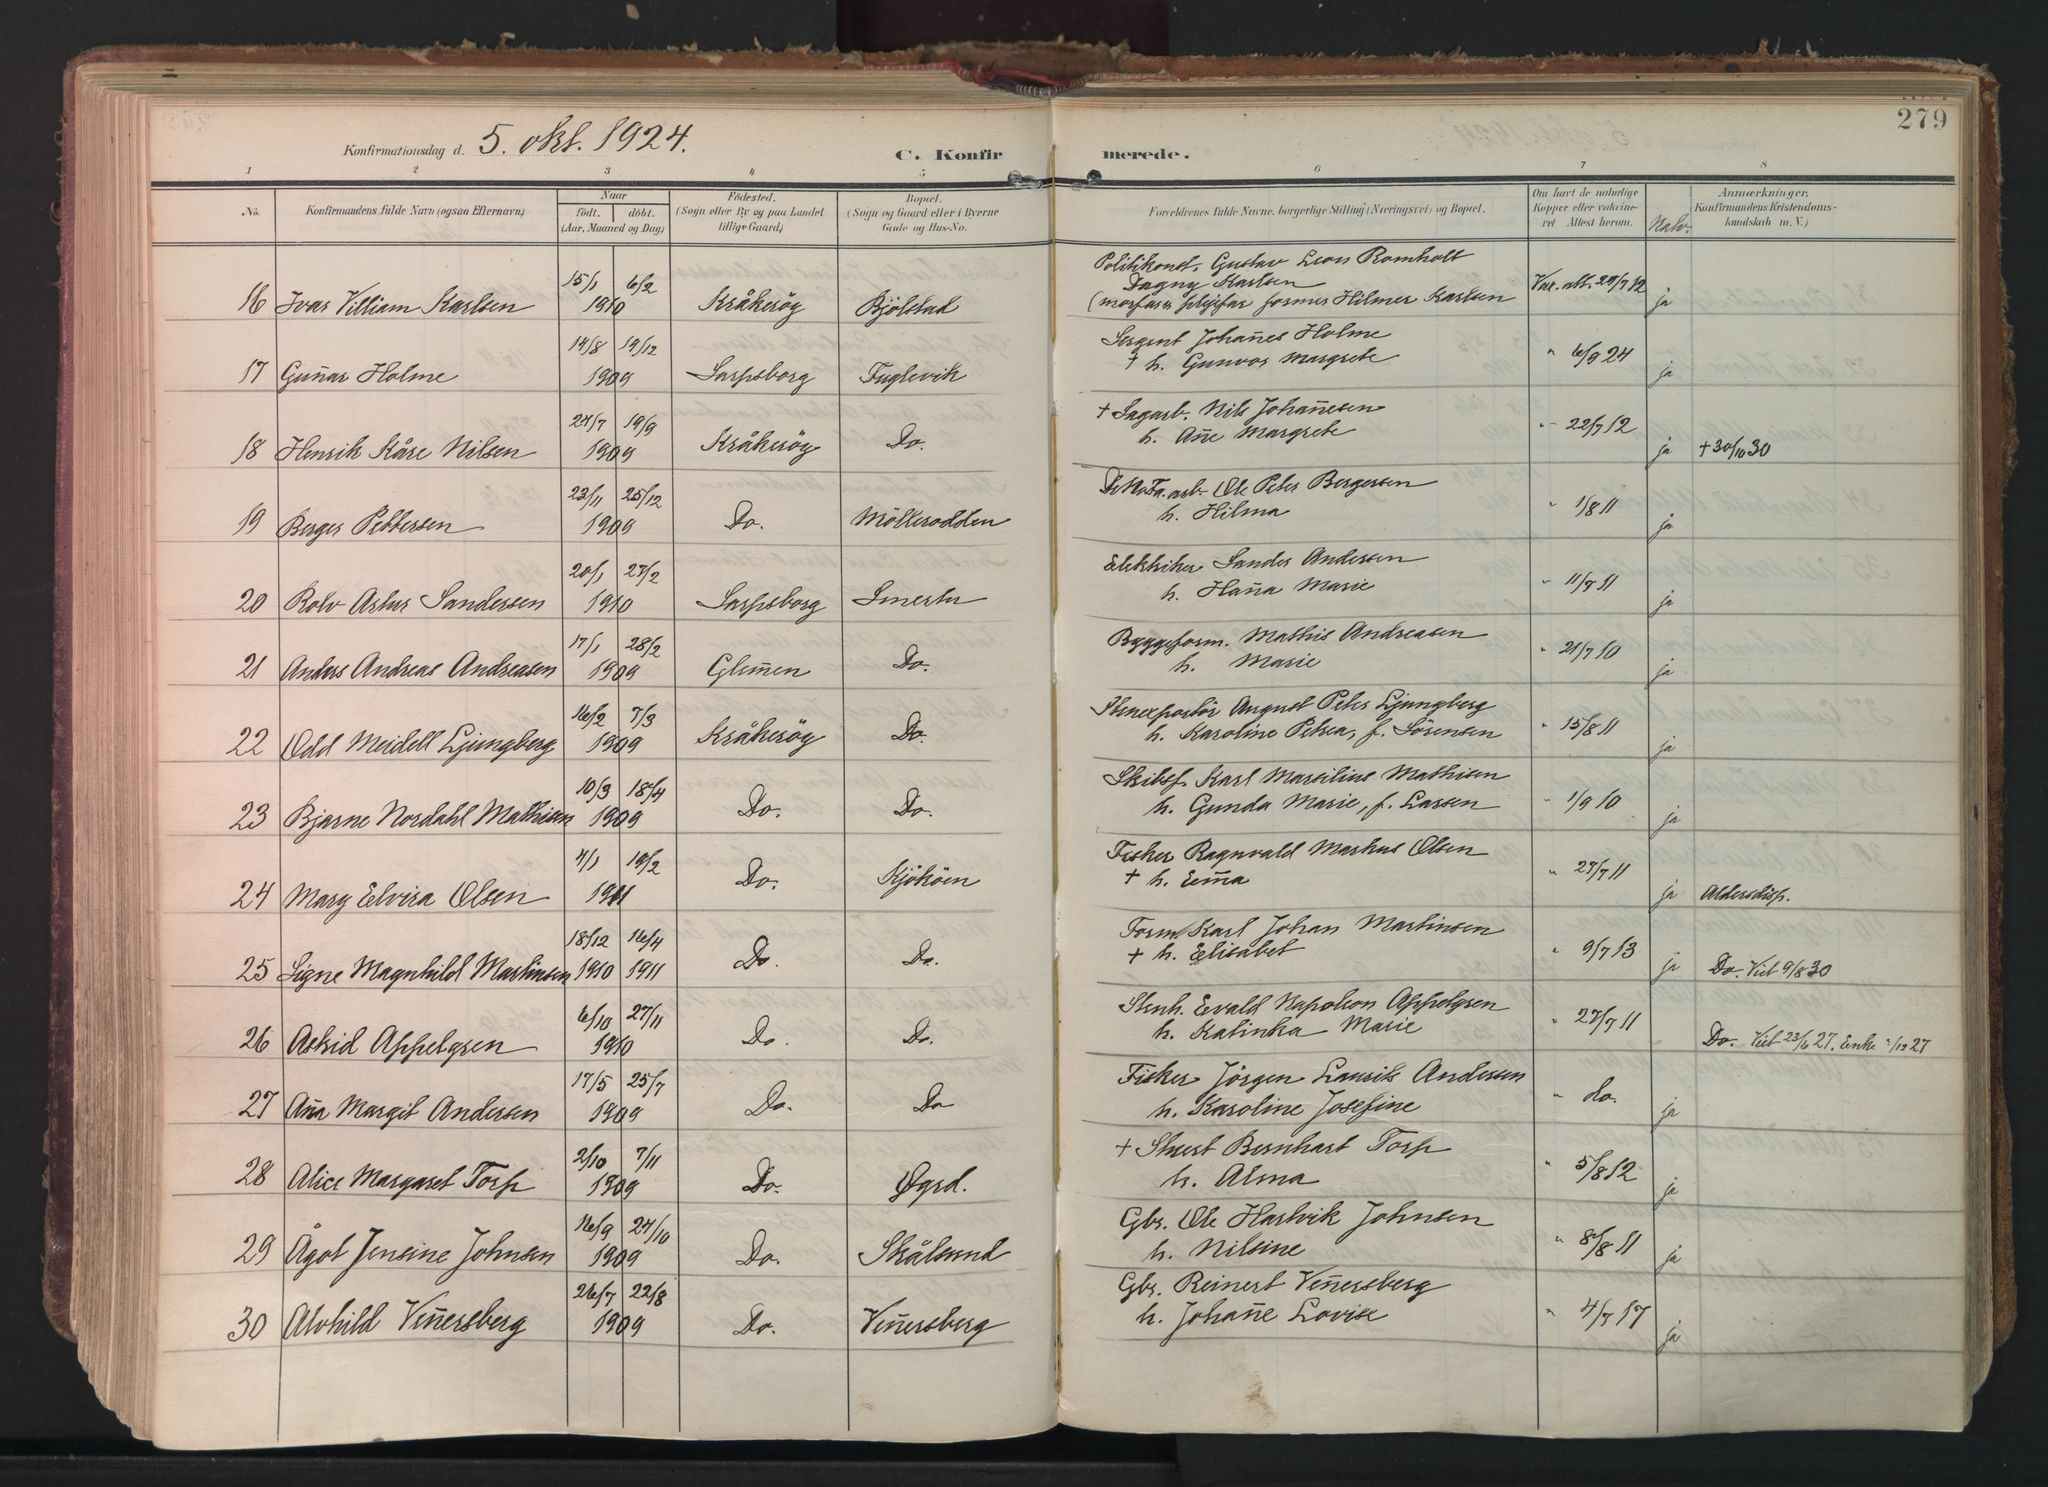 279
Konfirmationsdag d. 5. okt. 1924.
C. Konfirmerede.
1 2 3 4 5 6 7 8
No. Konfirmandens fulde Navn (ogsaa Efternavn) Naar födt. döbt. (Aar, Maaned og Dag) Födested. (Sogn eller By og paa Landet tillige Gaard) Bopæl. (Sogn og Gaard eller i Byerne Gade og Hus-No. Forældrenes fulde Navne, borgerlige Stilling (Næringsvei) og Bopæl. Om havt de naturlige Kopper eller vakcineret Attest herom. Anmærkninger. Konfirmandens Kristendomskundskab m. V.)
16 Ivar Villiam Karlsen 15/1 6/2 1910 Kråkeröy Bjölstad Politikonst. Gustav Leon Romholt
Dagny Karlsen
(morfaren plejefar former Hilmer Karlsen Vax. att. 29/7 12 ja
17 Guñar Holme 14/8 19/12 1909 Sarpsborg Fuglevik Sergent Johañes Holme
+ h. Gunvor Margrete " 6/9 24 ja
18 Henrik Kåre Nilsen 27/7 19/9 1909 Kråkeröy Do. + Sagarb. Nils Johañesen
h. Añe Margrete " 22/7 12 ja +30/10 30
19 Berger Pettersen 23/11 25/12 1909 Do. Mölkerodden arb. Ole Peter Bergersen
h. Hilma " 1/8 11 ja
20 Rolv Artur Sandersen 20/1 27/2 1910 Sarpsborg Smertu Elektriker Sander Andersen
h. Haña Marie " 11/7 11 ja
21 Anders Andreas Andreasen 17/1 28/2 1909 Glem̃en Do. Byggeform. Mathis Andreasen
h. Marie " 21/7 10 ja
22 Odd Meidell Ljungberg 16/2 7/3 1909 Kråkeröy Do. Stenexportör August Peter Ljungberg
h. Karoline Petrea, f. Sörensen " 15/8 11 ja
23 Bjarne Nordahl Mathisen 10/3 18/4 1909 Do. Do. Skibsf. Karl Marsilius Mathisen
h. Gunda Marie, f. Larsen " 1/9 10 ja
24 Mary Elvira Olsen 4/1 19/2 1911 Do. Kjököen Fisker Ragnvald Markus Olsen
+ h. Em̃a " 27/7 11 ja Aldersdisp.
25 Signe Magnhild Martinsen 18/12 1910 16/4 1911 Do. Do. Form. Karl Johan Martinsen
+ h. Elisabet " 9/7 13 ja Do. Viet 9/8 30
26 Astrid Appelgren 6/10 27/11 1910 Do. Do. Stenh. Evald Napoleon Appelgren
h. Kalinka Marie " 27/7 11 Do. Viet 23/6 27. Enke /12 27
27 Aña Margit Andersen 17/5 25/7 1909 Do. Do Fisker Jörgen Laurits Andersen
h. Karoline Josefine " do. ja
28 Alice Margaret Torp 2/10 7/11 1909 Do. Øgrd. + Stuert Bernhart Torp
h. Alma " 5/8 12 ja
29 Ågot Jensine Johnsen 16/9 24/10 1909 Do. Skålsund Gbr. Ole Hartvik Johnsen
h. Nilsine " 8/8 11 ja
30 Alvhild Veñersberg 26/7 22/8 1909 Do. Veñersberg Gbr. Reinert Veñersberg
h. Johañe Lovise " 4/7 17 ja